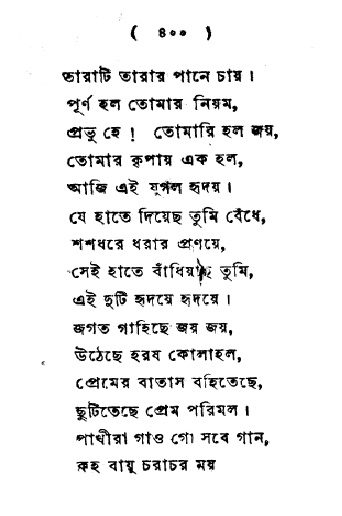 ( ৪০০ )
তারাটি তারার পানে চায় ।
পূর্ণ হল তোমার নিয়ম,
প্রভু হে ! তোমারি হল জয়,
তোমার কৃপায় এক হল,
আজি এই যুগল হৃদয় ।
যে হাতে দিয়েছ তুমি বেঁধে,
শশধরে ধরার প্রণয়ে,
সেই হাতে বাঁধিয়াছ তুমি,
এই দুটি হৃদয়ে হৃদয়ে ।
জগত গাহিছে জয় জয়,
উঠেছে হরষ কোলাহল,
প্রেমের বাতাস বহিতেছে,
ছুটিতেছে প্রেম পরিমল ।
পাখীরা গাও গো সবে গান,
কহ বায়ু চরাচর ময়